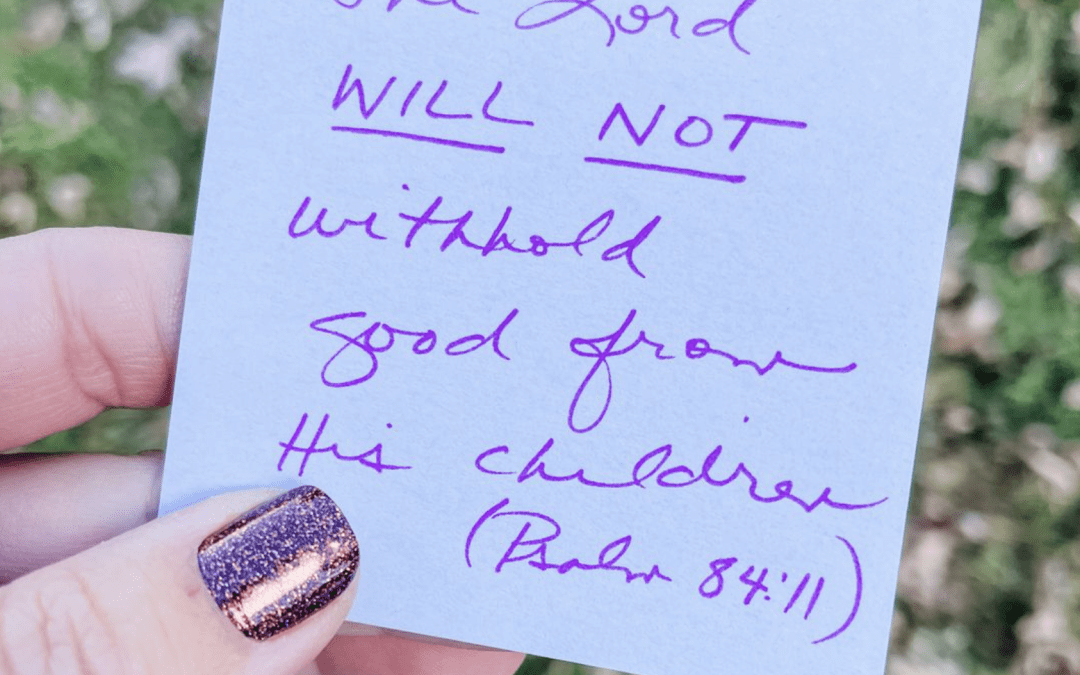 The Lord
WILL NOT
withhold
good from
His children
(Psalm 84:11)